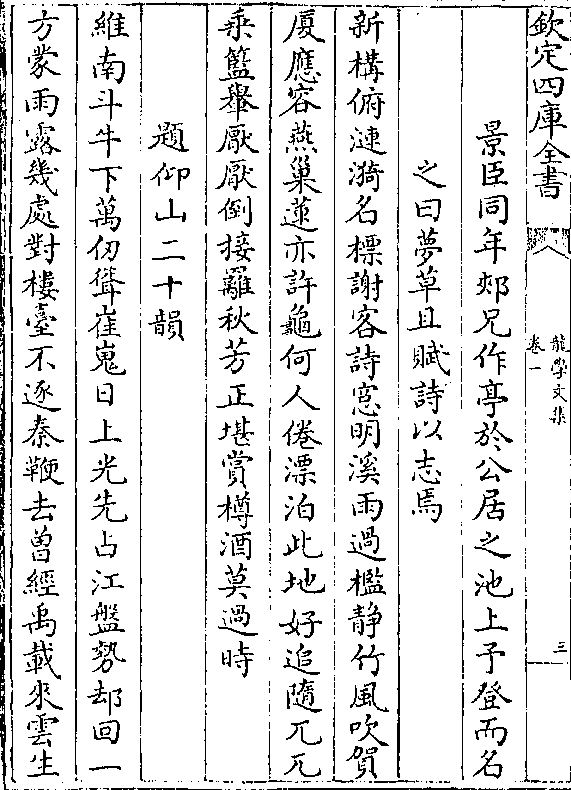 欽定四庫全書
龍學文集
卷一
三
景臣同年郟兄作亭於公居之池上予登而名
之曰夢草且賦詩以志焉
新構俯漣漪名標謝客詩窓明溪雨過檻静竹風吹賀
厦應容燕巢蓮亦許龜何人倦漂泊此地好追隨兀兀
乗籃轝厭厭倒接䍦秋芳正堪賞樽酒莫過時
題仰山二十韻
維南斗牛下萬仞聳崔嵬日上光先占江盤勢却回一
方蒙雨露幾處對樓臺不逐秦鞭去曽經禹載來雲生